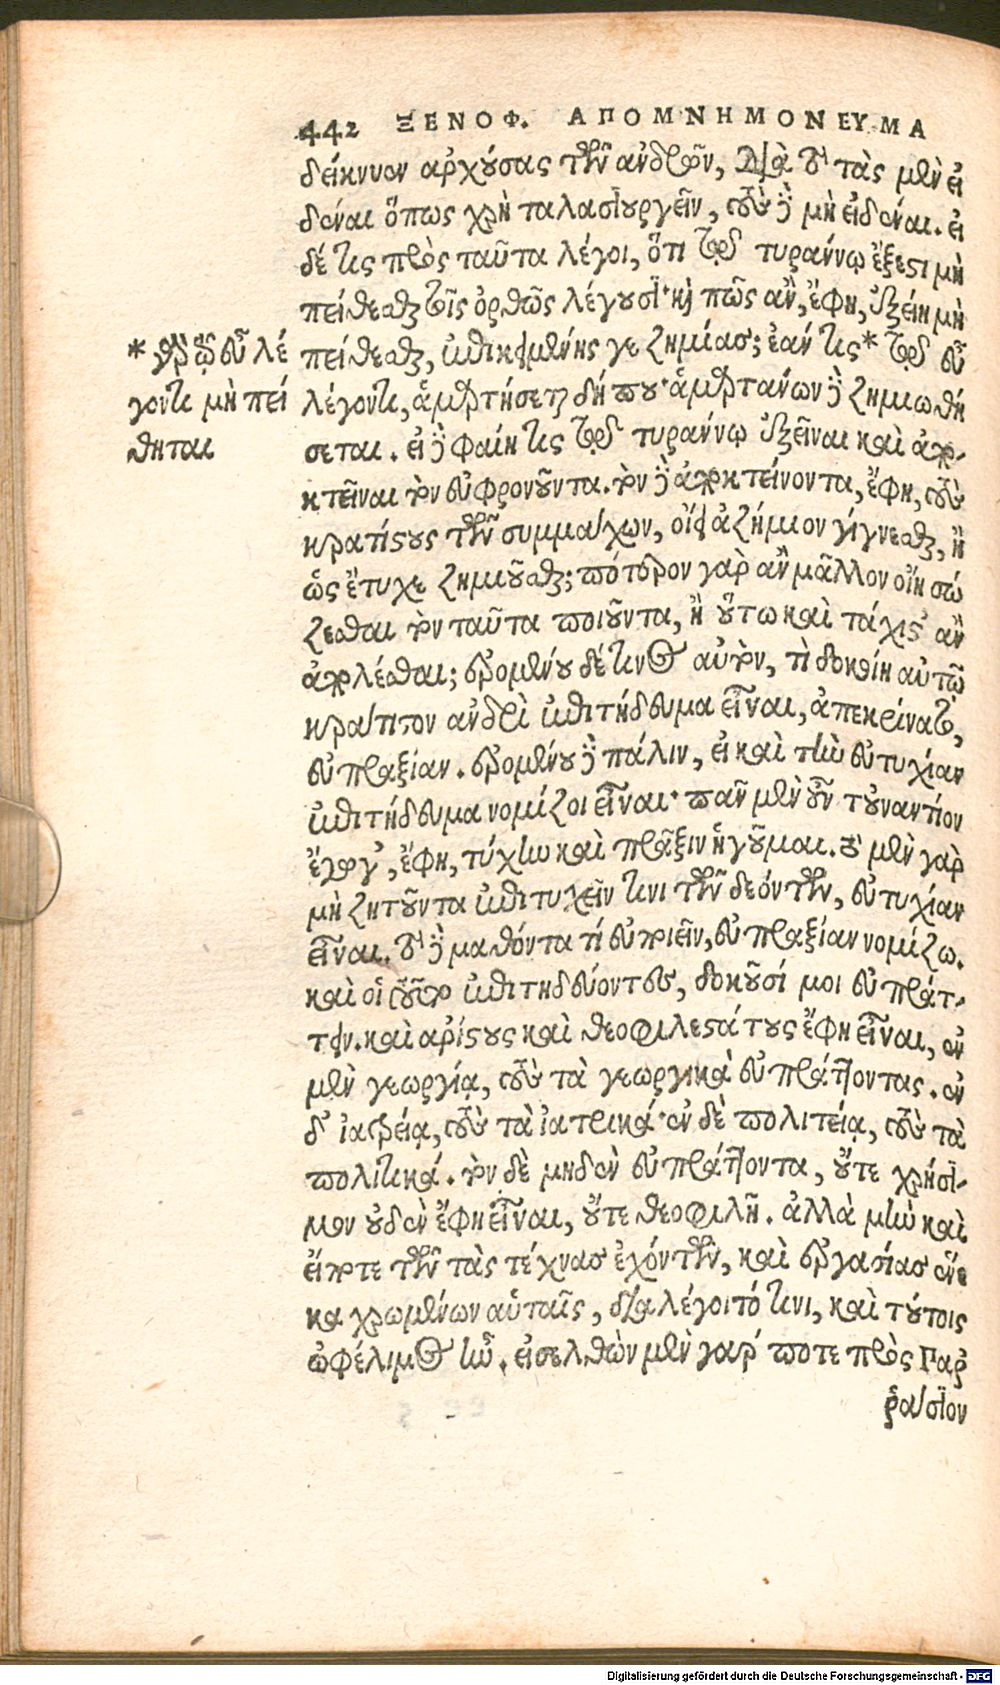 442 ΞΕΝΟΦ. ΑΠΟΜΝΗΜΟΝΕΥΜΑ
δείκνυεν ἀρχούσας τῶν ἀνδρῶν, διὰ τὸ τὰς μὲν εἰ
δέναι ὅπως χρὴ ταλασιουργεῖν, τοὺς δὲ μὴ εἰδέναι. εἰ
δέ τις πρὸς ταῦτα λέγοι, ὅτι τῷ τυράννῳ ἔξεστι μὴ
πείθεσθαι τοῖς ὀρθῶς λέγουσι· καὶ πῶς ἂν, ἔφη, ἐξείη μὴ
πείθεσθαι, ἐπικειμένης γε ζημίας; ἐάν τις* τῷ εὖ
λέγοντι, ἁμαρτήσεται δή που· ἁμαρτάνων δὲ ζημιωθή
σεται. εἰ δὲ φαίη τις τῷ τυράννῳ ἐξεῖναι καὶ ἀπο-
κτεῖναι τὸν εὐφρονοῦντα. τὸν δὲ ἀποκτείνοντα, ἔφη, τοὺς
κρατίστους τῶν συμμάχων, οἴει ἀζήμιον γίγνεσθαι, ἢ
ὡς ἔτυχε ζημιοῦσθαι; πότερον γὰρ ἂν μᾶλλον οἴη σώ
ζεσθαι τὸν ταῦτα ποιοῦντα, ἢ οὕτω καὶ τάχιστ' ἂν
ἀπολέσθαι; ἐρομένου δέ τινος αὐτὸν, τὶ δοκοίη αὐτῷ
κράτιστον ἀνδρὶ ἐπιτήδευμα εἶναι, ἀπεκρίνατο,
εὐπραξίαν. ἐρομένου δὲ πάλιν, εἰ καὶ τὴν εὐτυχίαν
ἐπιτήδευμα νομίζοι εἶναι· πᾶν μὲν οὖν τοὐναντίον
ἔγωγ', ἔφη, τύχην καὶ πρᾶξιν ἡγοῦμαι. τὸ μὲν γὰρ
μὴ ζητοῦντα ἐπιτυχεῖν τινι τῶν δεόντων, εὐτυχίαν
εἶναι. τὸ δὲ μαθόντα τί εὐποιεῖν, εὐπραξίαν νομίζω.
καὶ οἱ τοῦτο ἐπιτηδεύοντες, δοκοῦσί μοι εὐπράτ-
τειν. καὶ ἀρίστους καὶ θεοφιλεστάτους ἔφη εἶναι, ἐν
μὲν γεωργίᾳ, τοὺς τὰ γεωργικὰ εὐπράττοντας. ἐν
δ' ἰατρείᾳ, τοὺς τὰ ἰατρικά· ἐν δὲ πολιτείᾳ, τοὺς τὰ
πολιτικά. τὸν δὲ μηδὲν εὐπράττοντα, οὔτε χρήσι-
μον οὐδὲν ἔφη εἶναι, οὔτε θεοφιλῆ. ἀλλὰ μὴν καὶ
εἴποτε τῶν τὰς τέχνας ἐχόντων, καὶ ἐργασίας ἕνε
κα χρωμένων αὐταῖς, διαλέγοιτό τινι, καὶ τούτοις
ὠφέλιμος ἦν. εἰσελθὼν μὲν γάρ ποτε πρὸς Παρ
ῥάσιον
* γρ. ᾧ εὖ λέ
γοντι μὴ πεί
θηται
Digitalisierung gefördert durch die Deutsche Forschungsgemeinschaft - DFG